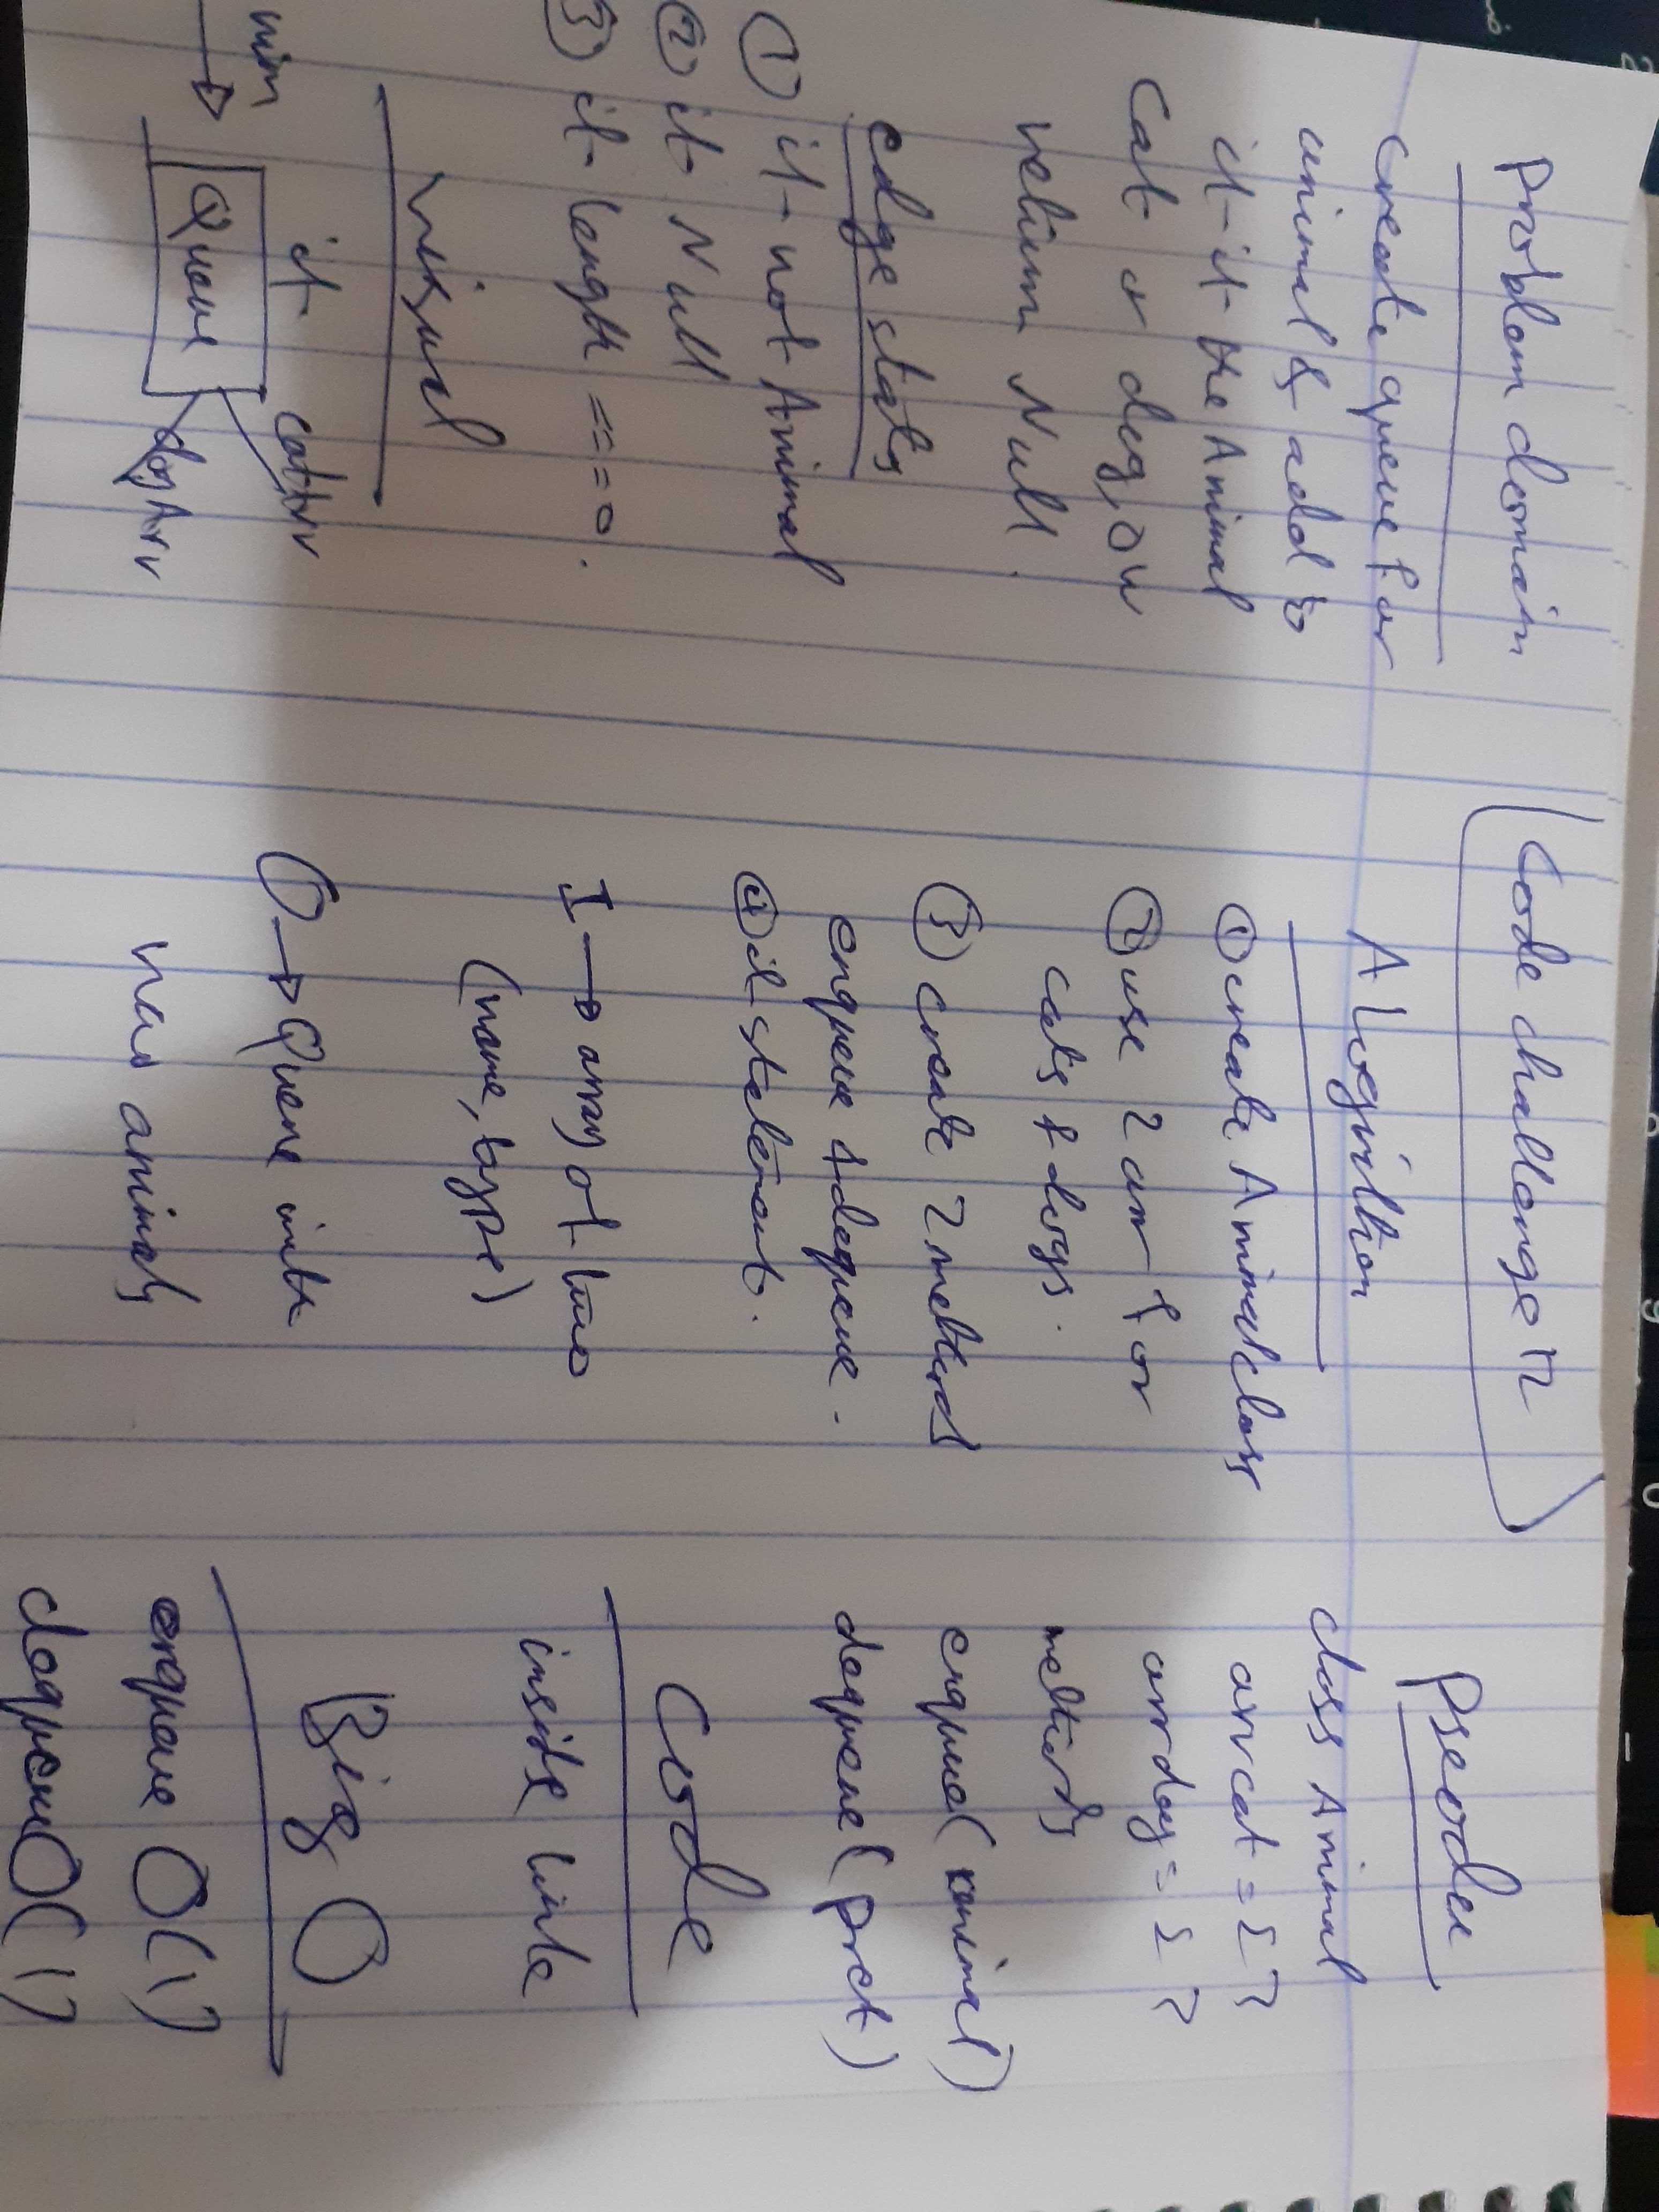 Code challenge 12
Problem domain
create queue for
animal & add to
if it the Animal
Cat or dog, or
return Null.
edge states
① if not Animal
② if Null
③ if length === 0.
visual
anim
if
Queue
catArr
dogArr
Alogirithm
① create Animal class
② use 2 arr for
cats & dogs.
③ create 2 methods
enqueue & dequeue.
④ if statement.
I → array of two
(name, type)
O → Queue with
new animals
Pseodeu
class Animal
arrcat = [ ]
arrdog = [ ]
methods
enqueue (animal)
dequeue (pret)
Code
inside link
Big O
enqueue O(1)
dequeue O(1)